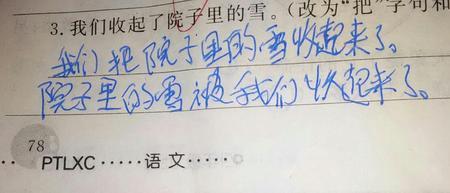 3.我们收起了院子里的雪。(改为“把”字句和
我们把院子里的雪收起来了。
院子里的雪被我们收起来了。
78
PTLXC·····语文·····